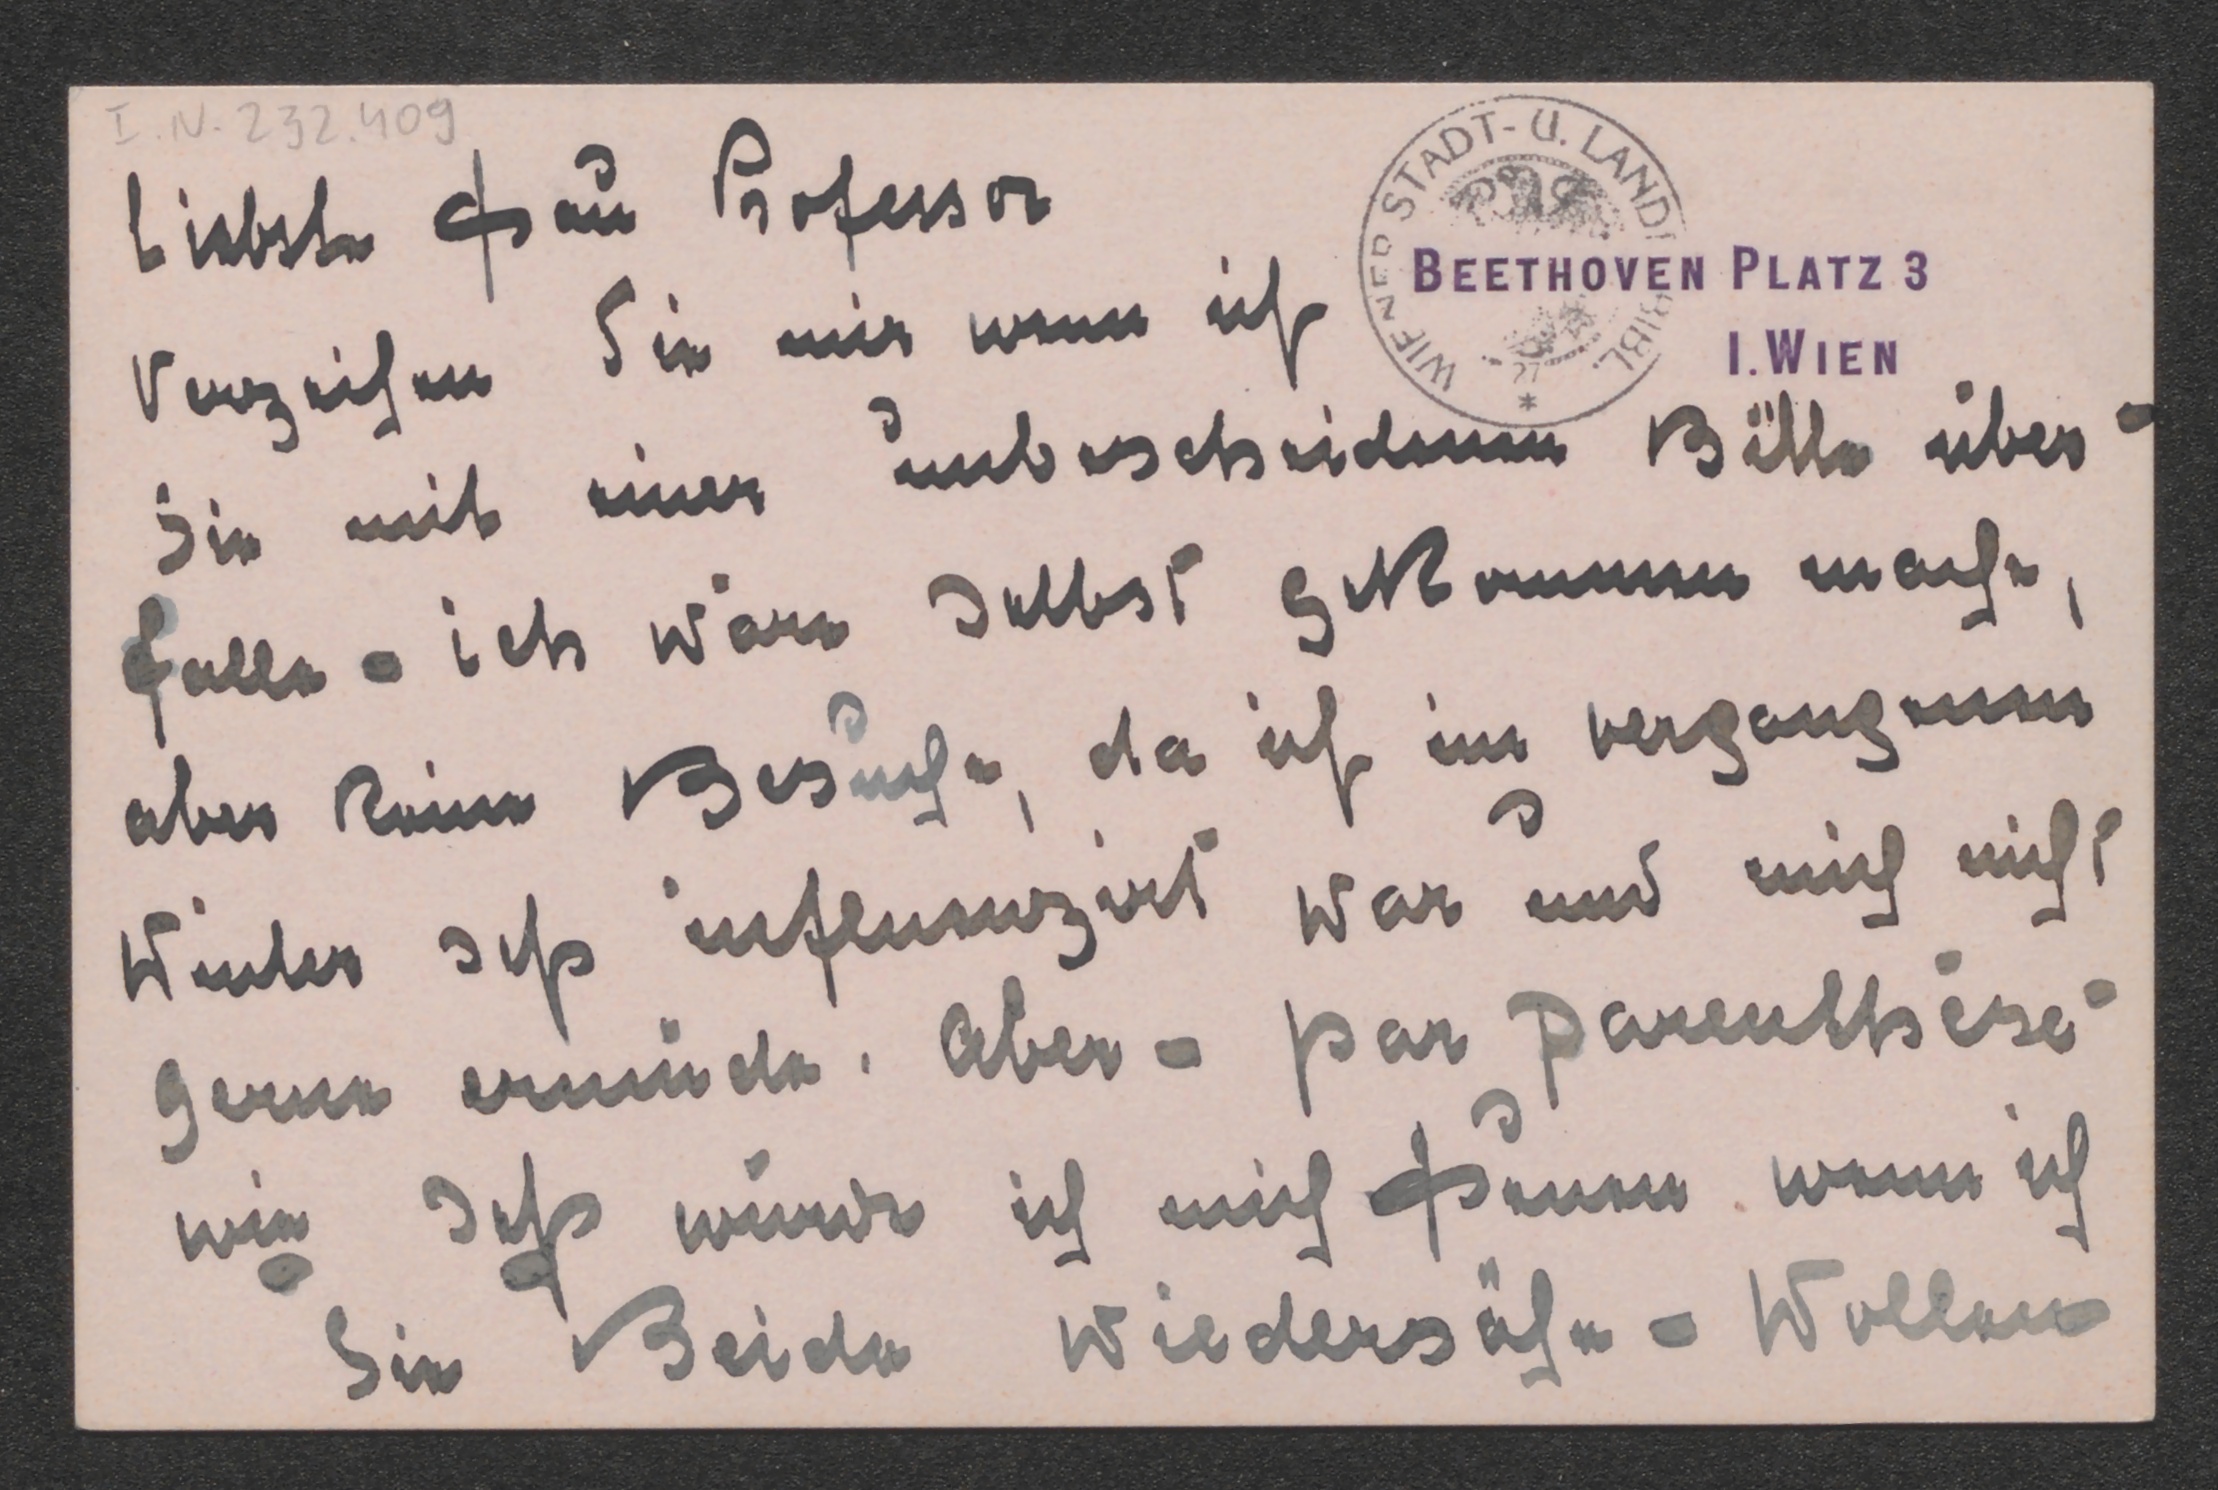 I.N. 232.409
WIENER STADT- U. LANDESBIBL.
27
BEETHOVEN PLATZ 3
I. WIEN
Liebste Frau Professor
Verzeihen Sie mir wenn ich
Sie mit einer unbescheidenen Bitte über-
falle - ich wäre selbst gekommen mache,
aber keine Besuche, da ich im vergangenen
Winter sehr influenzirt war und mich nicht
gerne ermüde. Aber - par parenthèse -
wie sehr würde ich mich freuen wenn ich
Sie Beide wiedersähe - Wollen